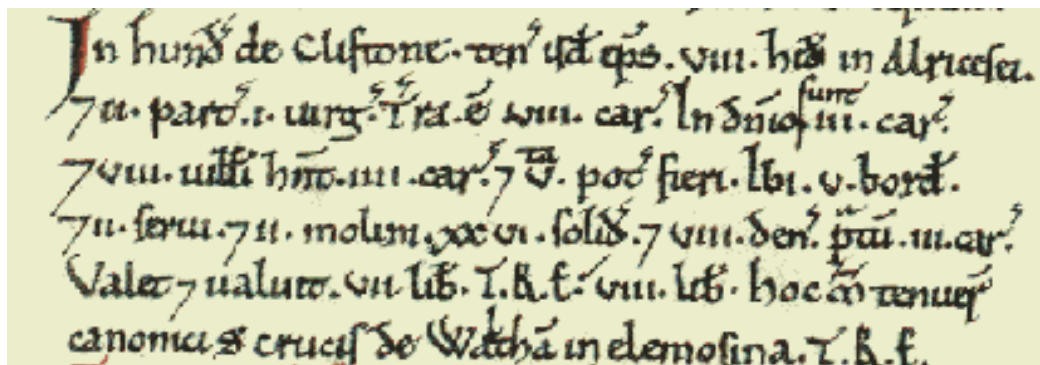 In hund' de Cliftone. ten' isđ ep̄s. viii. hiđ in Alricesei.
⁊ ii. part'. i. uirg'. T'ra. ē viii. car'. In dn̄io sunt iii. car'.
⁊ viii. uiłłi hn̄t. iiii. car'. ⁊ v. ta pot' fieri. Ibi. v. borđ.
⁊ ii. serui. ⁊ ii. molini. xxvi. solid'. ⁊ viii. den'. p̄tū. iii. car'.
Valet ⁊ ualuit. vii. lib̄. T.R.E.' viii. lib̄. hoc m̃ tenuer'
canonici S crucis de Walthā in elemosina. T.R.E.